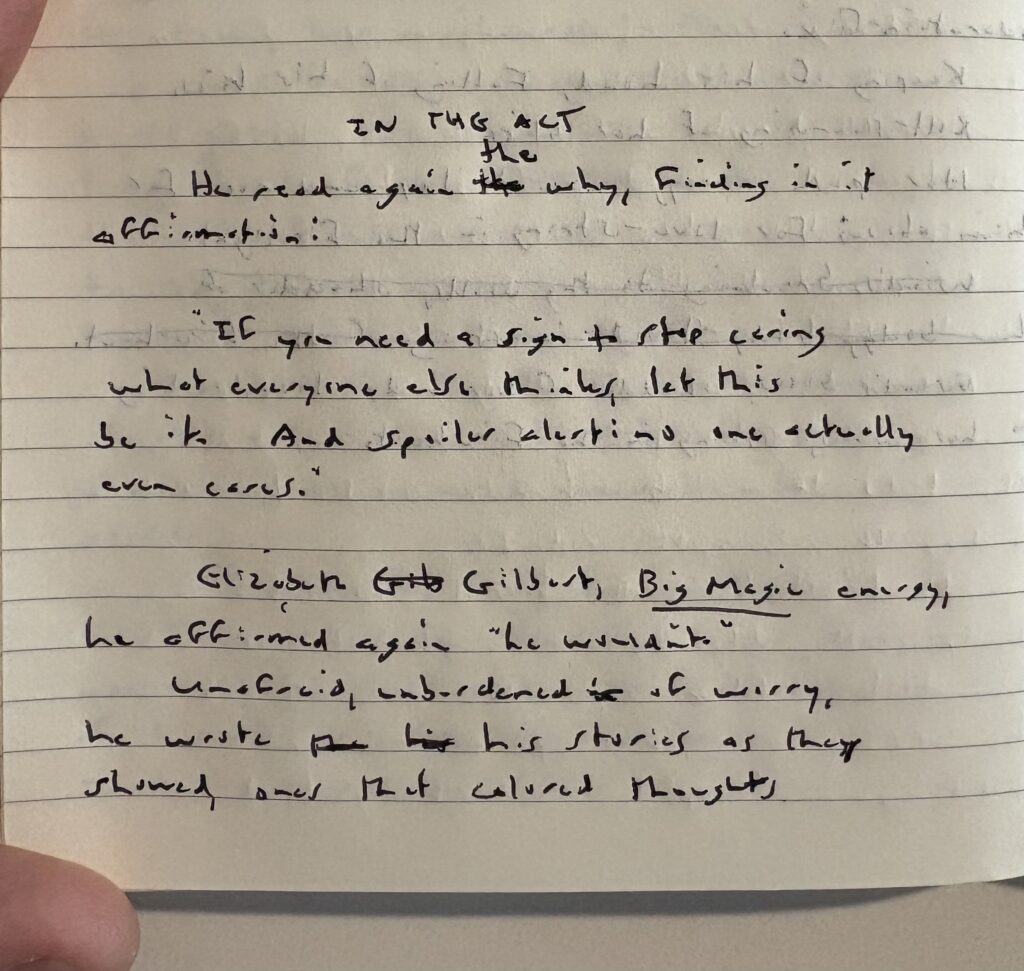 IN THE ACT
the
He read again the why, finding in it
affirmation:
"If you need a sign to stop caring
what everyone else thinks, let this
be it. And spoiler alert: no one actually
even cares."
Elizabeth Gilb Gilbert, Big Magic energy,
he affirmed again "he wouldn't."
Unafraid, unburdened of worry,
he wrote his his stories as they
showed, ones that colored thoughts